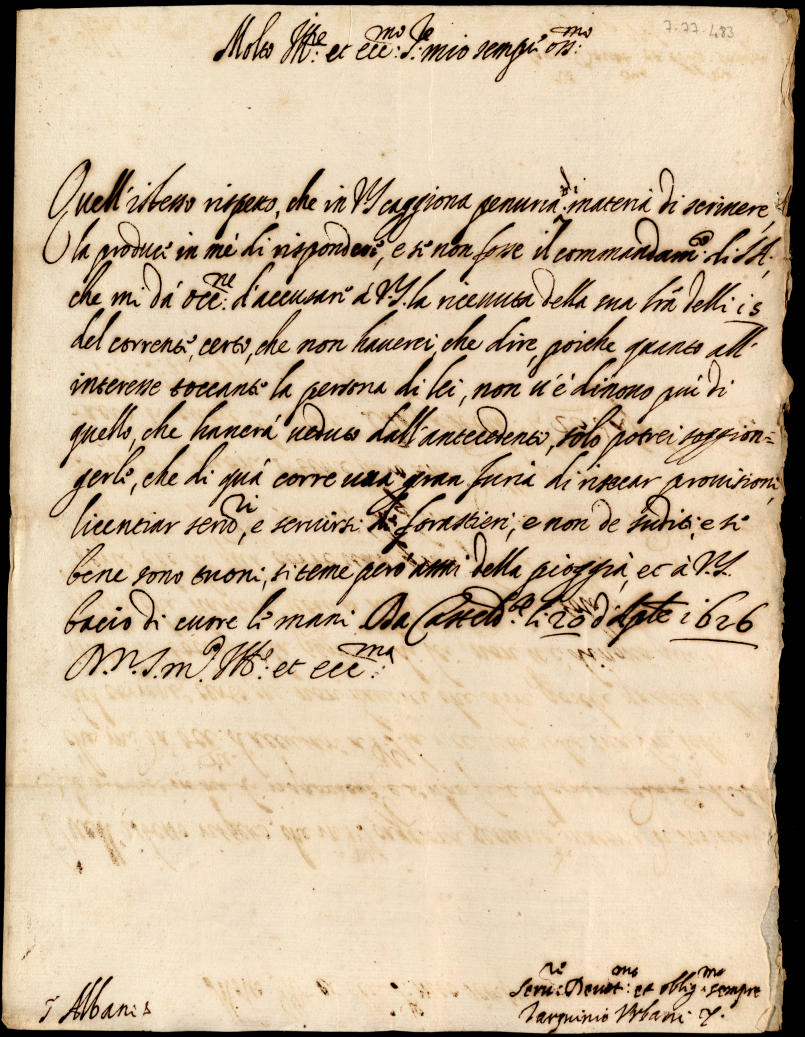 7-77-483
Molto Ill.re et ecc.mo S.re mio sempre oss.mo
Quell'istesso rispetto, che in V.S. caggiona penuria di materia di scrivere,
la produce in mé di rispondere, e se non fosse il commandam.to di S.A.
che mi dá occ.ne d'accusare á V.S. la ricevuta della sua lr̃a delli 15
del corrente, certo, che non haverei che dire, poiche quanto all'
interesse toccante la persona di lei, non vi é di novo piú di
quello, che haverá veduto dall'antecedente, solo potrei soggion=
gerle, che di quá corre una gran furia di risecar provisioni,
licentiar servi.ri, e servirsi de forastieri, e non de sudditi, e se
bene sono tuoni, si teme peró anni della pioggia, et á V.S.
bacio di cuore le mani. Da Casteld.te li 20 d'Aple 1626
D.V.S. m.to Ill.re et ecc.ma
Ser.re Devot.mo et oblig.mo sempre
Tarquinio Urbani
Albane